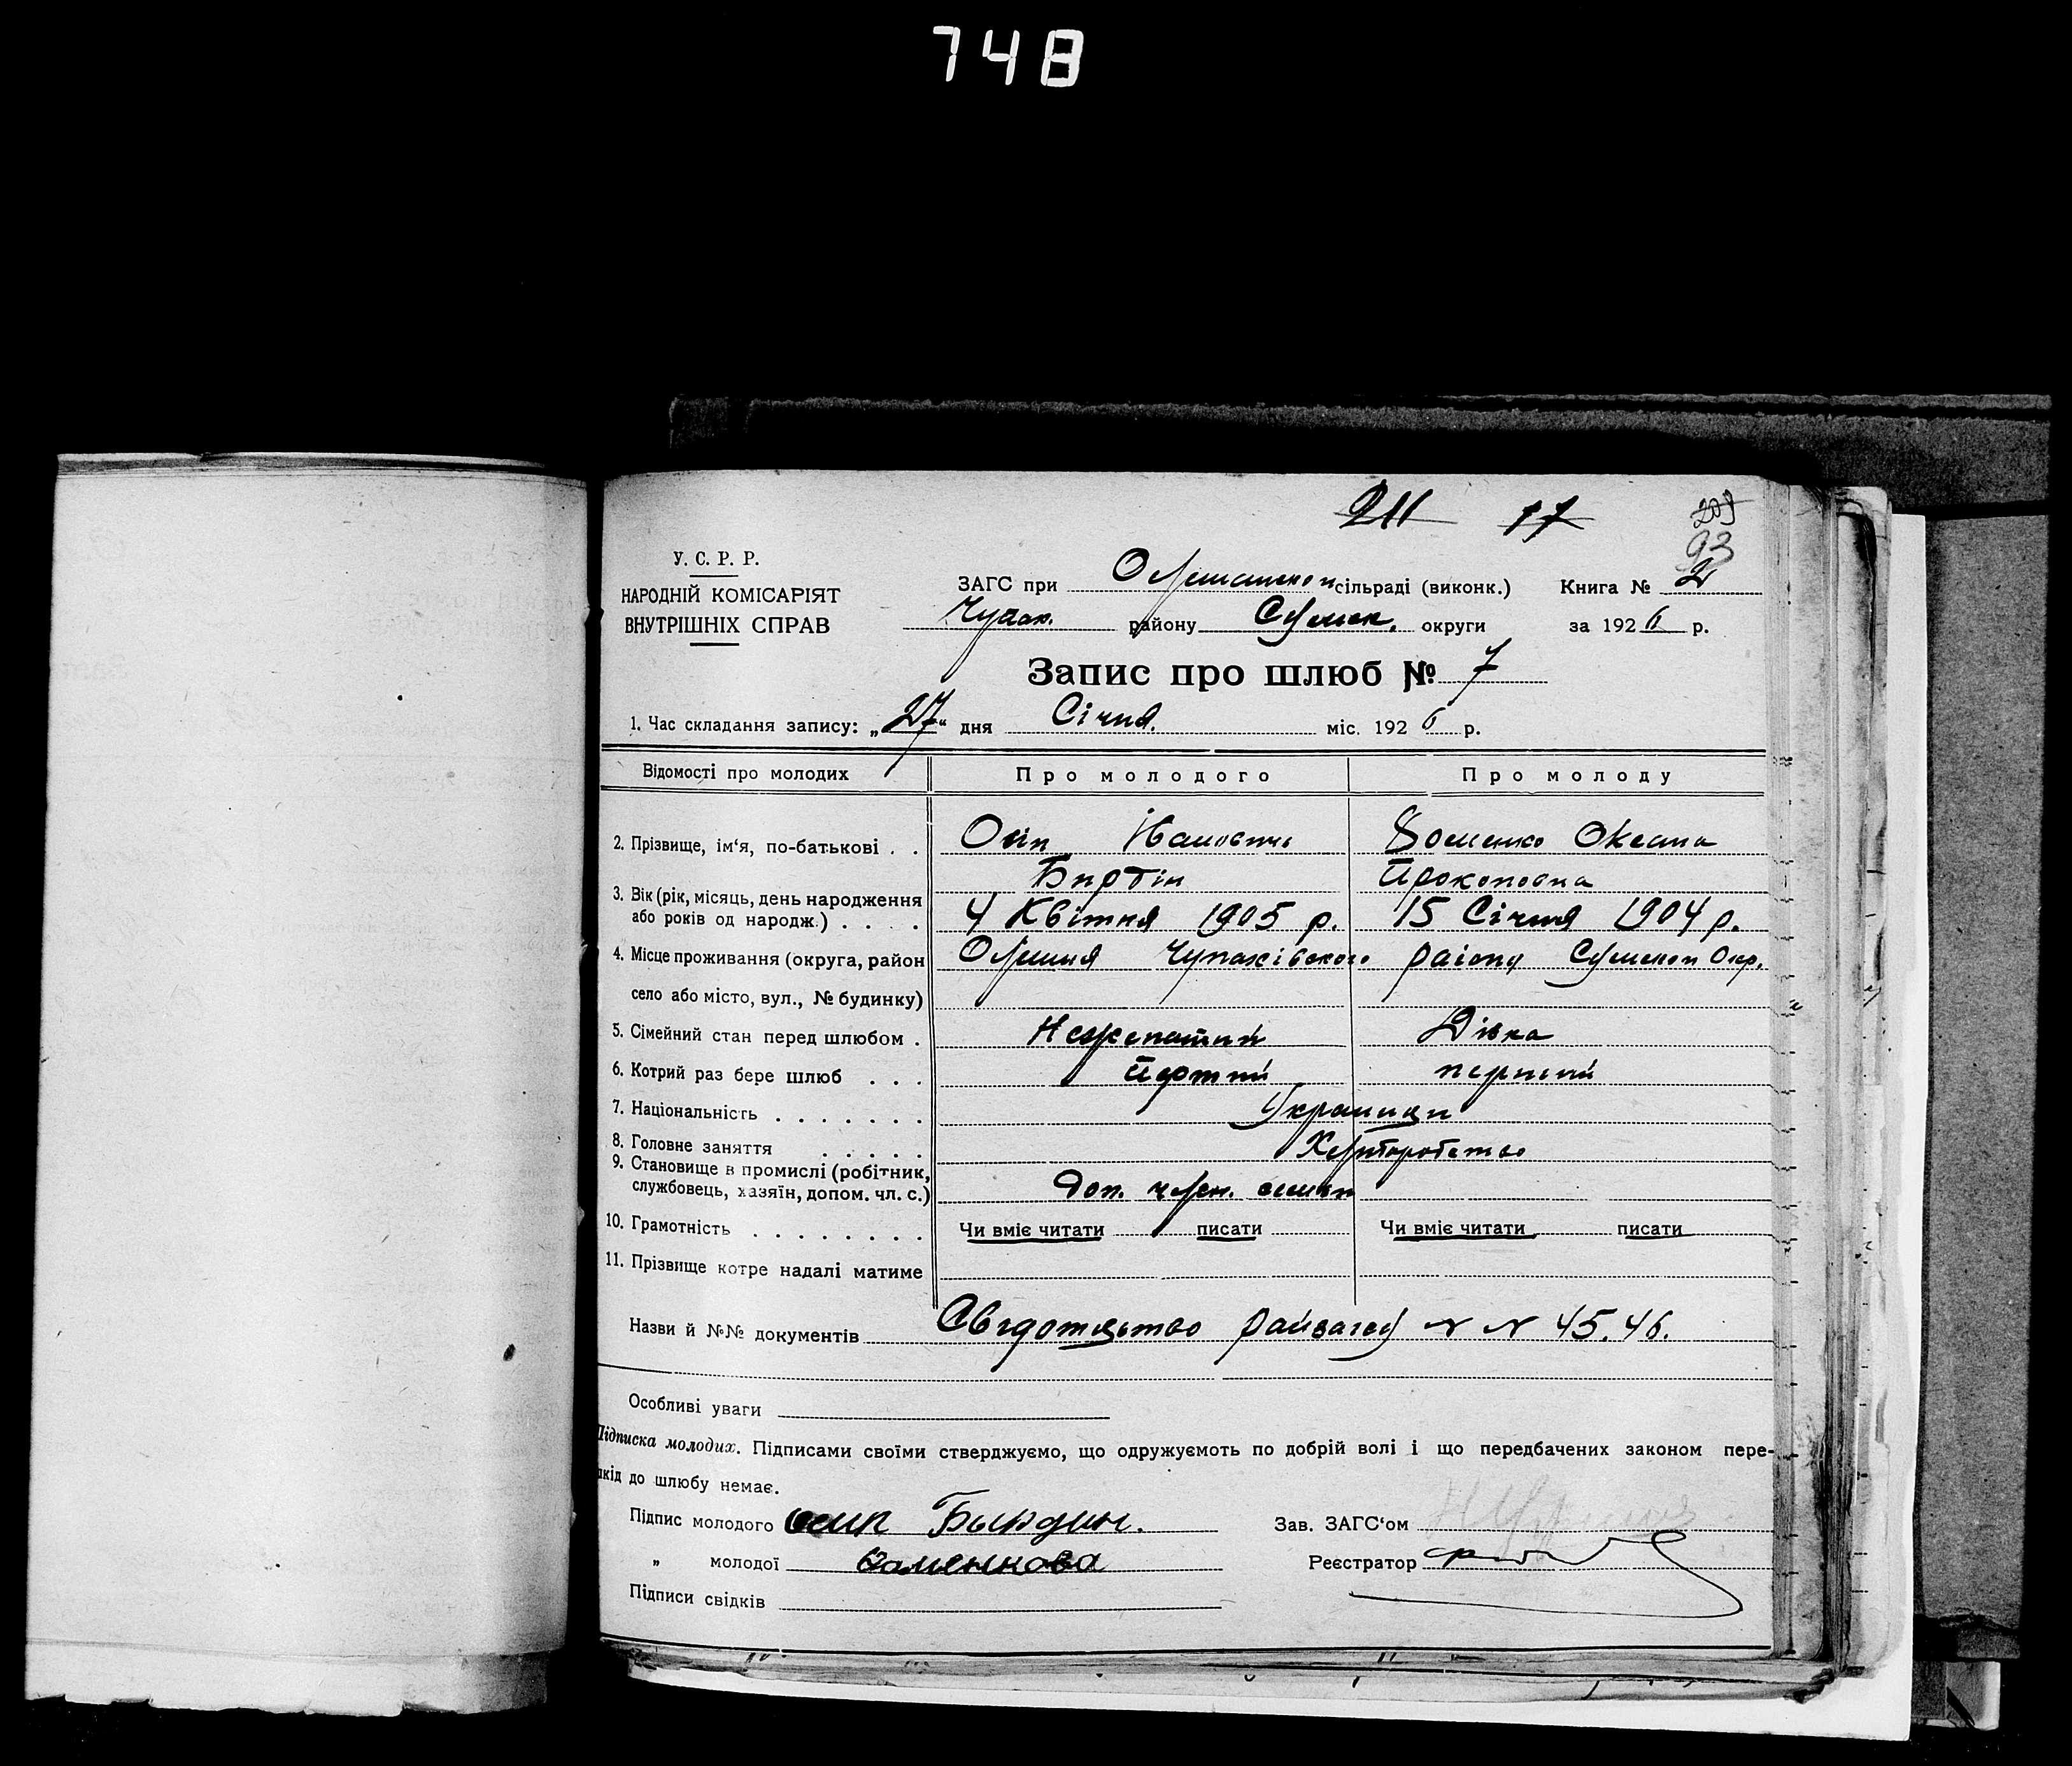 748
211 17 203
93
У. С. Р. Р.
НАРОДНІЙ КОМІСАРІЯТ
ВНУТРІШНІХ СПРАВ
ЗАГС при Олешанскои сільраді (виконк.) Книга № 2
Чупах. району Сумск. округи за 1926 р.
Запис про шлюб № 7
1. Час складання запису: „27“ дня Січня. міс. 1926 р.
Відомості про молодих Про молодого Про молоду
2. Прізвище, ім‘я, по-батькові . . Осіп Иванович Оксана
Бирдін Прокоповна
3. Вік (рік, місяць, день народження
або років од народж.) . . . . 4 Квітня 1905 р. 15 Січня 1904 р.
4. Місце проживання (округа, район Олешня Чупахівского раіону Сумскои Окр.
село або місто, вул., № будинку)
5. Сімейний стан перед шлюбом . Нежепатий Дівка
6. Котрий раз бере шлюб . . . перший
7. Національність . . . . . . . Украинци
8. Головне заняття . . . . . Хліборобство
9. Становище в промислі (робітник,
службовець, хазяїн, допом. чл. с.) Доп. член. симьи
10. Грамотність . . . . . . . . Чи вміє читати писати Чи вміє читати писати
11. Прізвище котре надалі матиме
Назви й №№ документів Свідотцьтво райзагсу N N 45. 46.
Особливі уваги
Підписка молодих. Підписами своїми стверджуємо, що одружуємоть по добрій волі і що передбачених законом пере-
шкід до шлюбу немає.
Підпис молодого осип Бырдин. Зав. ЗАГС‘ом
„ молодої Реєстратор
Підписи свідків